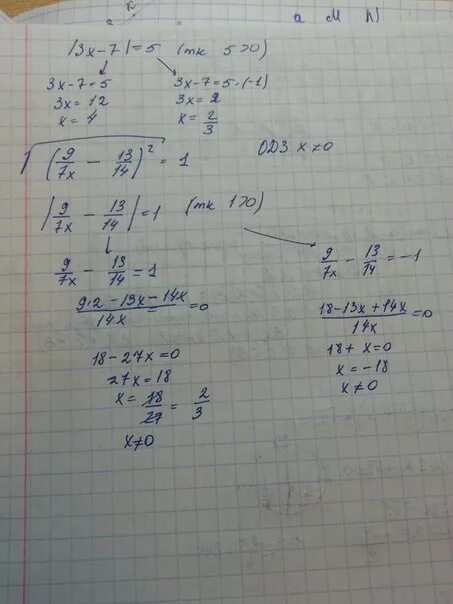 а М N
|3x-7|=5 (тк 5>0)
3x-7=5
3x=12
x=4
3x-7=5·(-1)
3x=2
x=2/3
√(9/7x - 13/14)² = 1 ОДЗ x≠0
|9/7x - 13/14|=1 (тк 1>0)
9/7x - 13/14 = 1
(9·2-13x-14x)/14x=0
18-27x=0
27x=18
x=18/27=2/3
x≠0
9/7x - 13/14 = -1
(18-13x+14x)/14x=0
18+x=0
x=-18
x≠0